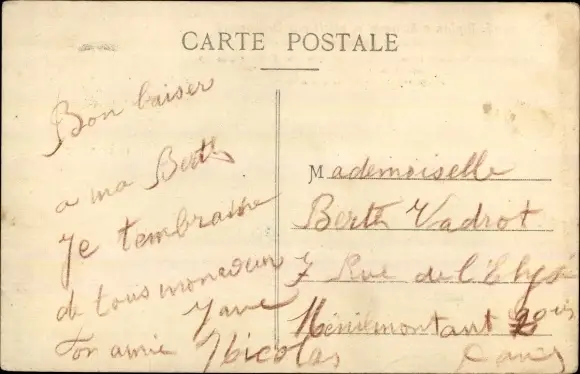 CARTE POSTALE
Bon baiser
a ma Berth
Je tembrasse
de tous mon coeur
ton amie
Nicolas
Mademoiselle
Berth Vadrot
7 Rue de l'Elysé
Ménilmontant 20
Paris